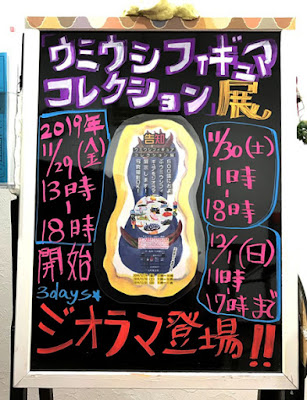 ウミウシフィギュア
コレクション展
2019年
11/29(金)
13時
-
18時
開始
3days★
告知
11/30(土)
11時
-
18時
12/1(日)
11時
-
17時まで
ジオラマ登場!!